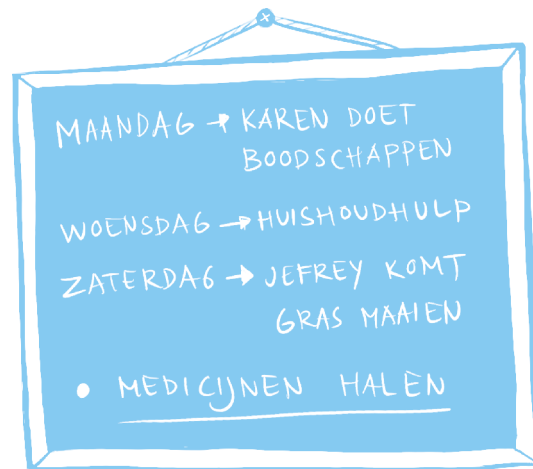 MAANDAG → KAREN DOET
BOODSCHAPPEN
WOENSDAG → HUISHOUDHULP
ZATERDAG → JEFREY KOMT
GRAS MAAIEN
• MEDICIJNEN HALEN